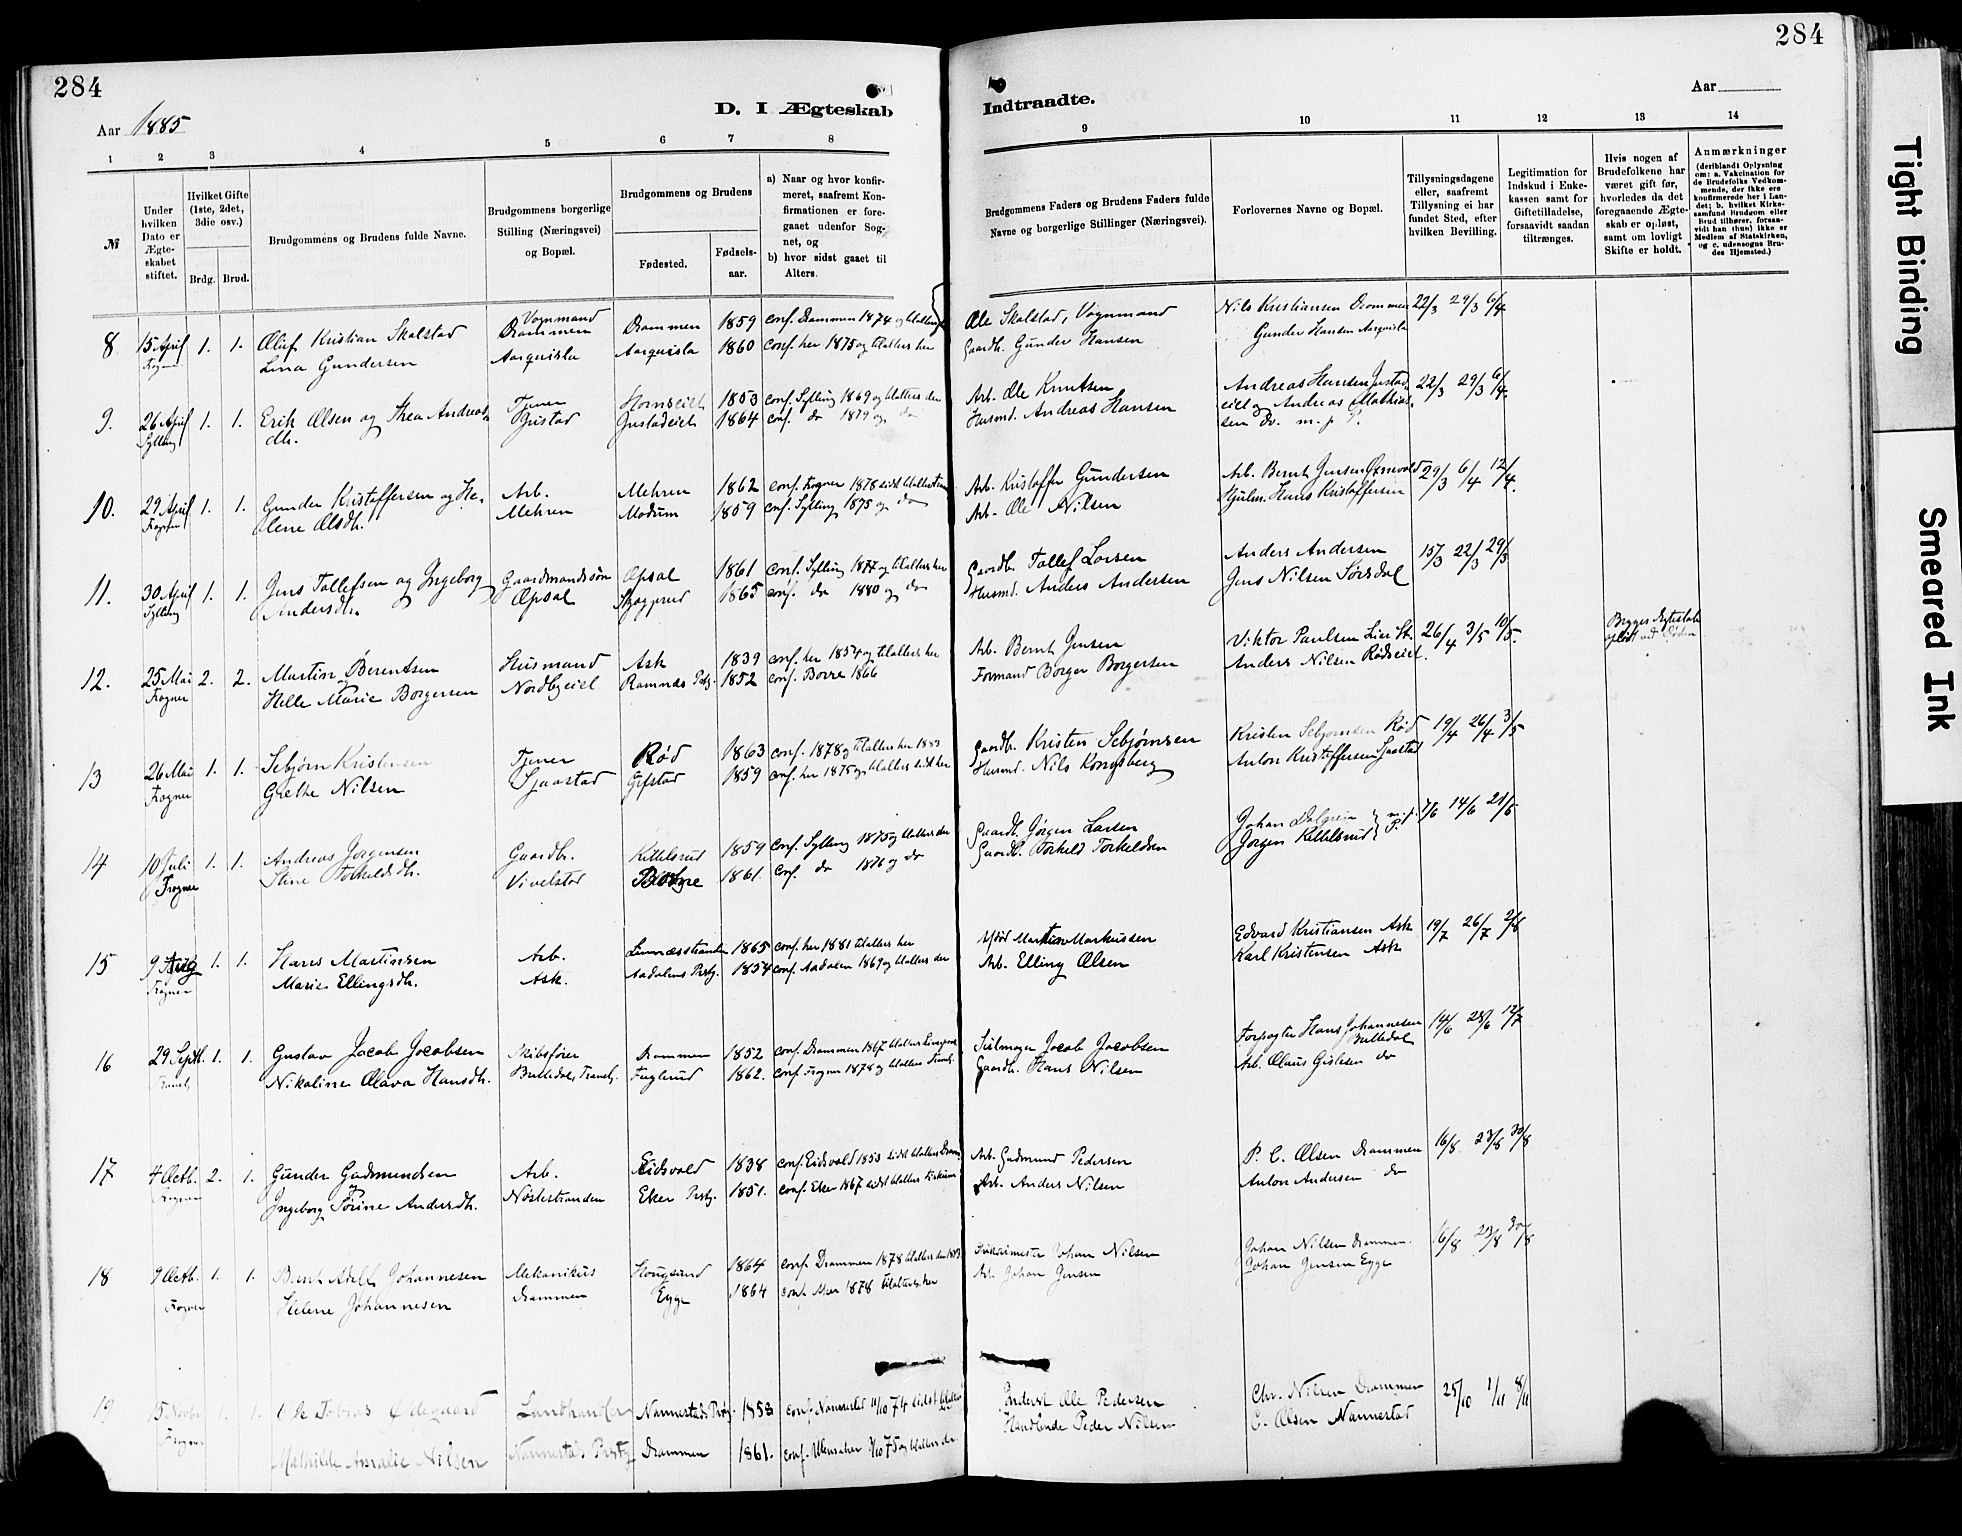 284
284
Aar 1885
D. I Ægteskab
Indtraadte.
Aar
1 2 3 4 5 6 7 8 9 10 11 12 13 14
№
Under hvilken Dato er Ægteskabet stiftet.
Hvilket Gifte (1ste, 2det, 3die osv.)
Brdg. Brud.
Brudgommens og Brudens fulde Navne.
Brudgommens borgerlige Stilling (Næringsvei) og Bopæl.
Brudgommens og Brudens
Fødested.
Fødselsaar.
a) Naar og hvor konfirmeret, saafremt Konfirmationen er foregaaet udenfor Sognet, og
b) hvor sidst gaaet til Alters.
Brudgommens Faders og Brudens Faders fulde Navne og borgerlige Stillinger (Næringsvei).
Forlovernes Navne og Bopæl.
Tillysningsdagene eller, saafremt Tillysning ei har fundet Sted, efter hvilken Bevilling.
Legitimation for Indskud i Enkekassen samt for Giftetilladelse, forsaavidt saadan tiltrænges.
Hvis nogen af Brudefolkene har været gift før, hvorledes da det foregaaende Ægteskab er opløst, samt om lovligt Skifte er holdt.
Anmærkninger (deriblandt Oplysning om: a. Vakcination for de Brudefolks Vedkommende, der ikke ere konfirmerede her i Landet; b. hvilket Kirkesamfund Brudgom eller Brud tilhører, forsaavidt han (hun) ikke er Medlem af Statskirken, og c. udensogns Brudes Hjemsted.)
Vognmand
8 15 April 1. 1. Oluf Kristian Skalstad Drammen Drammen 1859 conf. Drammen 1874 og Ole Skalstad, Vognmand Nils Kristiansen Drammen 22/3 29/3 6/4
Lina Gundersen Aarquisla Aarquisla 1860 conf. her 1875 og tilalters her Gaardb. Gunder Hansen Gunder Hansen Aarquisla
9. 26 April Sylling 1. 1. Erik Olsen og Thea Andreasdtr. Tjener Hornseiet 1853 conf. Sylling 1869 og tilalters der Arb. Ole Knutsen Andreas Hansen 22/3 29/3 6/4.
Justad Justadeiet 1864 conf. do 1879 og do Husmd. Andreas Hansen eiet og Andreas Mathiassen do. m. p. P.
10. 29 April Frogner 1. 1. Gunder Kristoffersen og Helene Olsdtr. Arb. Mehren 1862 conf. Frogner 1878 sidst tilalters Arb. Kristoffer Gundersen Arb. Bernt Jensen 29/3 6/4 12/4.
Mehren Modum 1859 conf. Sylling 1875 og do Arb. Ole Nilsen Hjulm. Hans Kristoffersen
11. 30 April Sylling 1. 1. Jens Tollefsen og Ingeborg Andersdtr. Gaardmandssøn Opsal 1861 conf. Sylling 1877 og tilalters her Gaardb. Tollef Larsen Anders Andersen 15/3 22/3 29/3
Opsal 1865 conf. do 1880 og do Husmd. Anders Andersen Jens Nilsen Sørsdal
12. 25 Mai Frogner 2. 2. Martin Berentsen og Husmand Ask 1839 conf. her 1854 og tilalters her Arb. Bernt Jensen Viktor Paulsen Lier St. 26/4 3/5 10/5. Begges Ægteskab opløst ved Døden
Helle Marie Borgersen Nordbyeiet Ramnæs Prstg. 1852 conf. Borre 1866 Formand Borger Borgersen Anders Nilsen Rødseiet
13 26 Mai Frogner 1. 1. Sebjørn Kristensen Tjener Rød 1863 conf. 1878 og tilalters her 1883 Gaardb. Kristen Sebjørnsen Kristen Sebjørnsen Rød 19/4 26/4 3/5
Grethe Nilsen Sjaastad Gifstad 1859 conf. her 1875 og tilalters sidst her Husmd. Nils Kongsberg Anton Kristoffersen Sjaastad
14 10 Juli Frogner 1. 1. Andreas Jørgensen Gaardbr. Kittelsrud 1859 conf. Sylling 1875 og tilalters der Gaardb. Jørgen Larsen Johan 7/6 14/6 21/6
Stine Torkeldsdtr. Vivelstad 1861. conf. do 1876 og do Gaardb. Torkeld Torkeldsen Jørgen Kittelsrud m. p. P.
15 9 Aug Frogner 1. 1. Hans Martinsen Arb. Linnæsstranden 1865 conf. her 1881 tilalters her Martin Markussen Edvard Kristiansen Ask 19/7 26/7 2/8
Marie Ellingsdtr. Ask. Aadalens Prstg. 1854 conf. Aadalen 1869 og tilalters der Arb. Elling Olsen Karl Kristensen Ask
16 29 Septb. 1. 1. Gustav Jacob Jacobsen Skibsfører Drammen 1852 conf. Drammen 1867 tilalters Seilmager Jacob Jacobsen Forpagter Hans Johannesen Bulledal 14/6 28/6 12/7
Nikoline Olava Hansdtr. Bulledal, Tranby. Fuglerud 1862. conf. Frogner 1878 og tilalters Tranby. Gaardb. Hans Nilsen Arb. Olaus Gislesen do
17 4 Octb. Frogner 2. 1. Gunder Gudmundsen Arb. Eidsvold 1838 conf. Eidsvold 1853 sidst tilalters Dram. Arb. Gudmund Pedersen P. C. Olsen Drammen 16/8 23/8 30/8
Ingeborg Tørine Andersdtr. Nøstestranden Eker Prstg. 1851. conf. Eker 1867 sidst tilalters Arb. Anders Nilsen Anton Andersen do
18 9 Octb. Frogner 1. 1. Bernt Adolf Johannesen Mekanikus Hougsund 1864 conf. Drammen 1878 tilalters der 1883 Johan Nilsen Johan Nilsen Drammen. 16/8 23/8 30/8
Helene Johannesen Drammen Egge 1864 conf. 1878 tilalters her Arb. Johan Jensen Johan Jensen Egge
19 15 Novbr. Frogner 1. 1. Ole Tobias Ødegaard Landhandler Nannestads Prstg. 1853 conf. Nannestad 11/10 74 sidst tilalters der Inderst Ole Pedersen Chr. Nilsen Drammen 25/10 1/11 8/11
Mathilde Amalie Nilsen Nannestads Prstg Drammen 1861. conf. Ullensaker 3/10 75 og tilalters der. Handlende Peder Nilsen C. Olsen Nannestad
Tight Binding
Smeared Ink